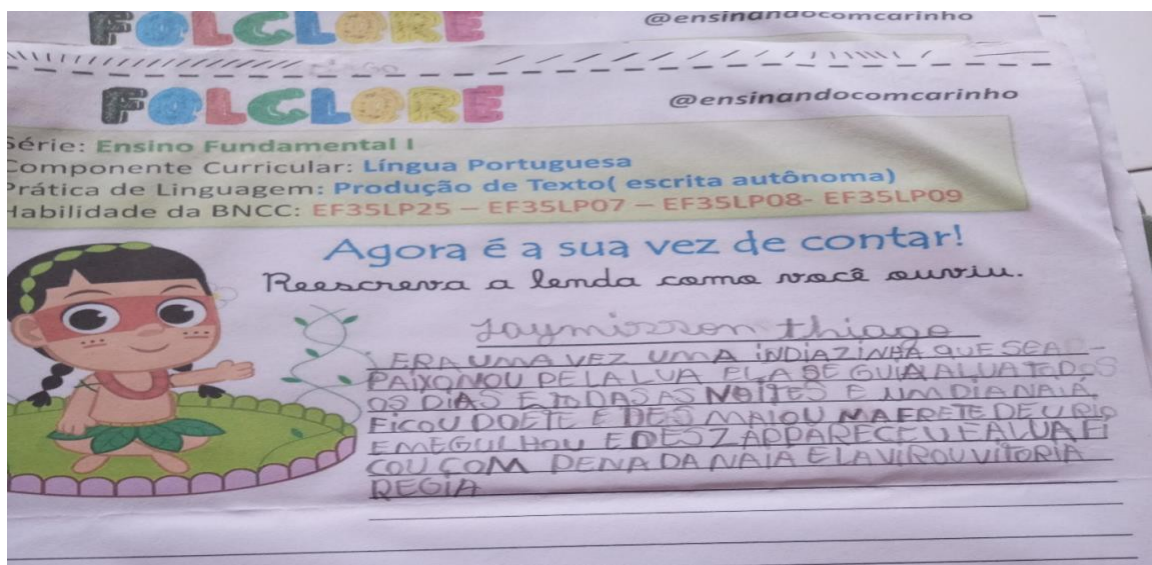 FOLCLORE @ensinandocomcarinho
FOLCLORE @ensinandocomcarinho
Série: Ensino Fundamental I
Componente Curricular: Língua Portuguesa
Prática de Linguagem: Produção de Texto( escrita autônoma)
Habilidade da BNCC: EF35LP25 – EF35LP07 – EF35LP08- EF35LP09
Agora é a sua vez de contar!
Reescreva a lenda como você ouviu.
Laymisson thiago
ERA UMA VEZ UMA INDIAZINHA QUE SEA-
PAIXONOU PELA LUA ELA SE GUIA A LUA TODOS
OS DIAS E TODAS AS NOITES E UM DIA NAIÁ
FICOU DOETE E DESMAIOU NA FRETE DE U RIO
E MEGULHOU E DESZAPPARECEU E A LUA FI
COU COM PENA DA NAIA E LA VIROU VITORIA
REGIA